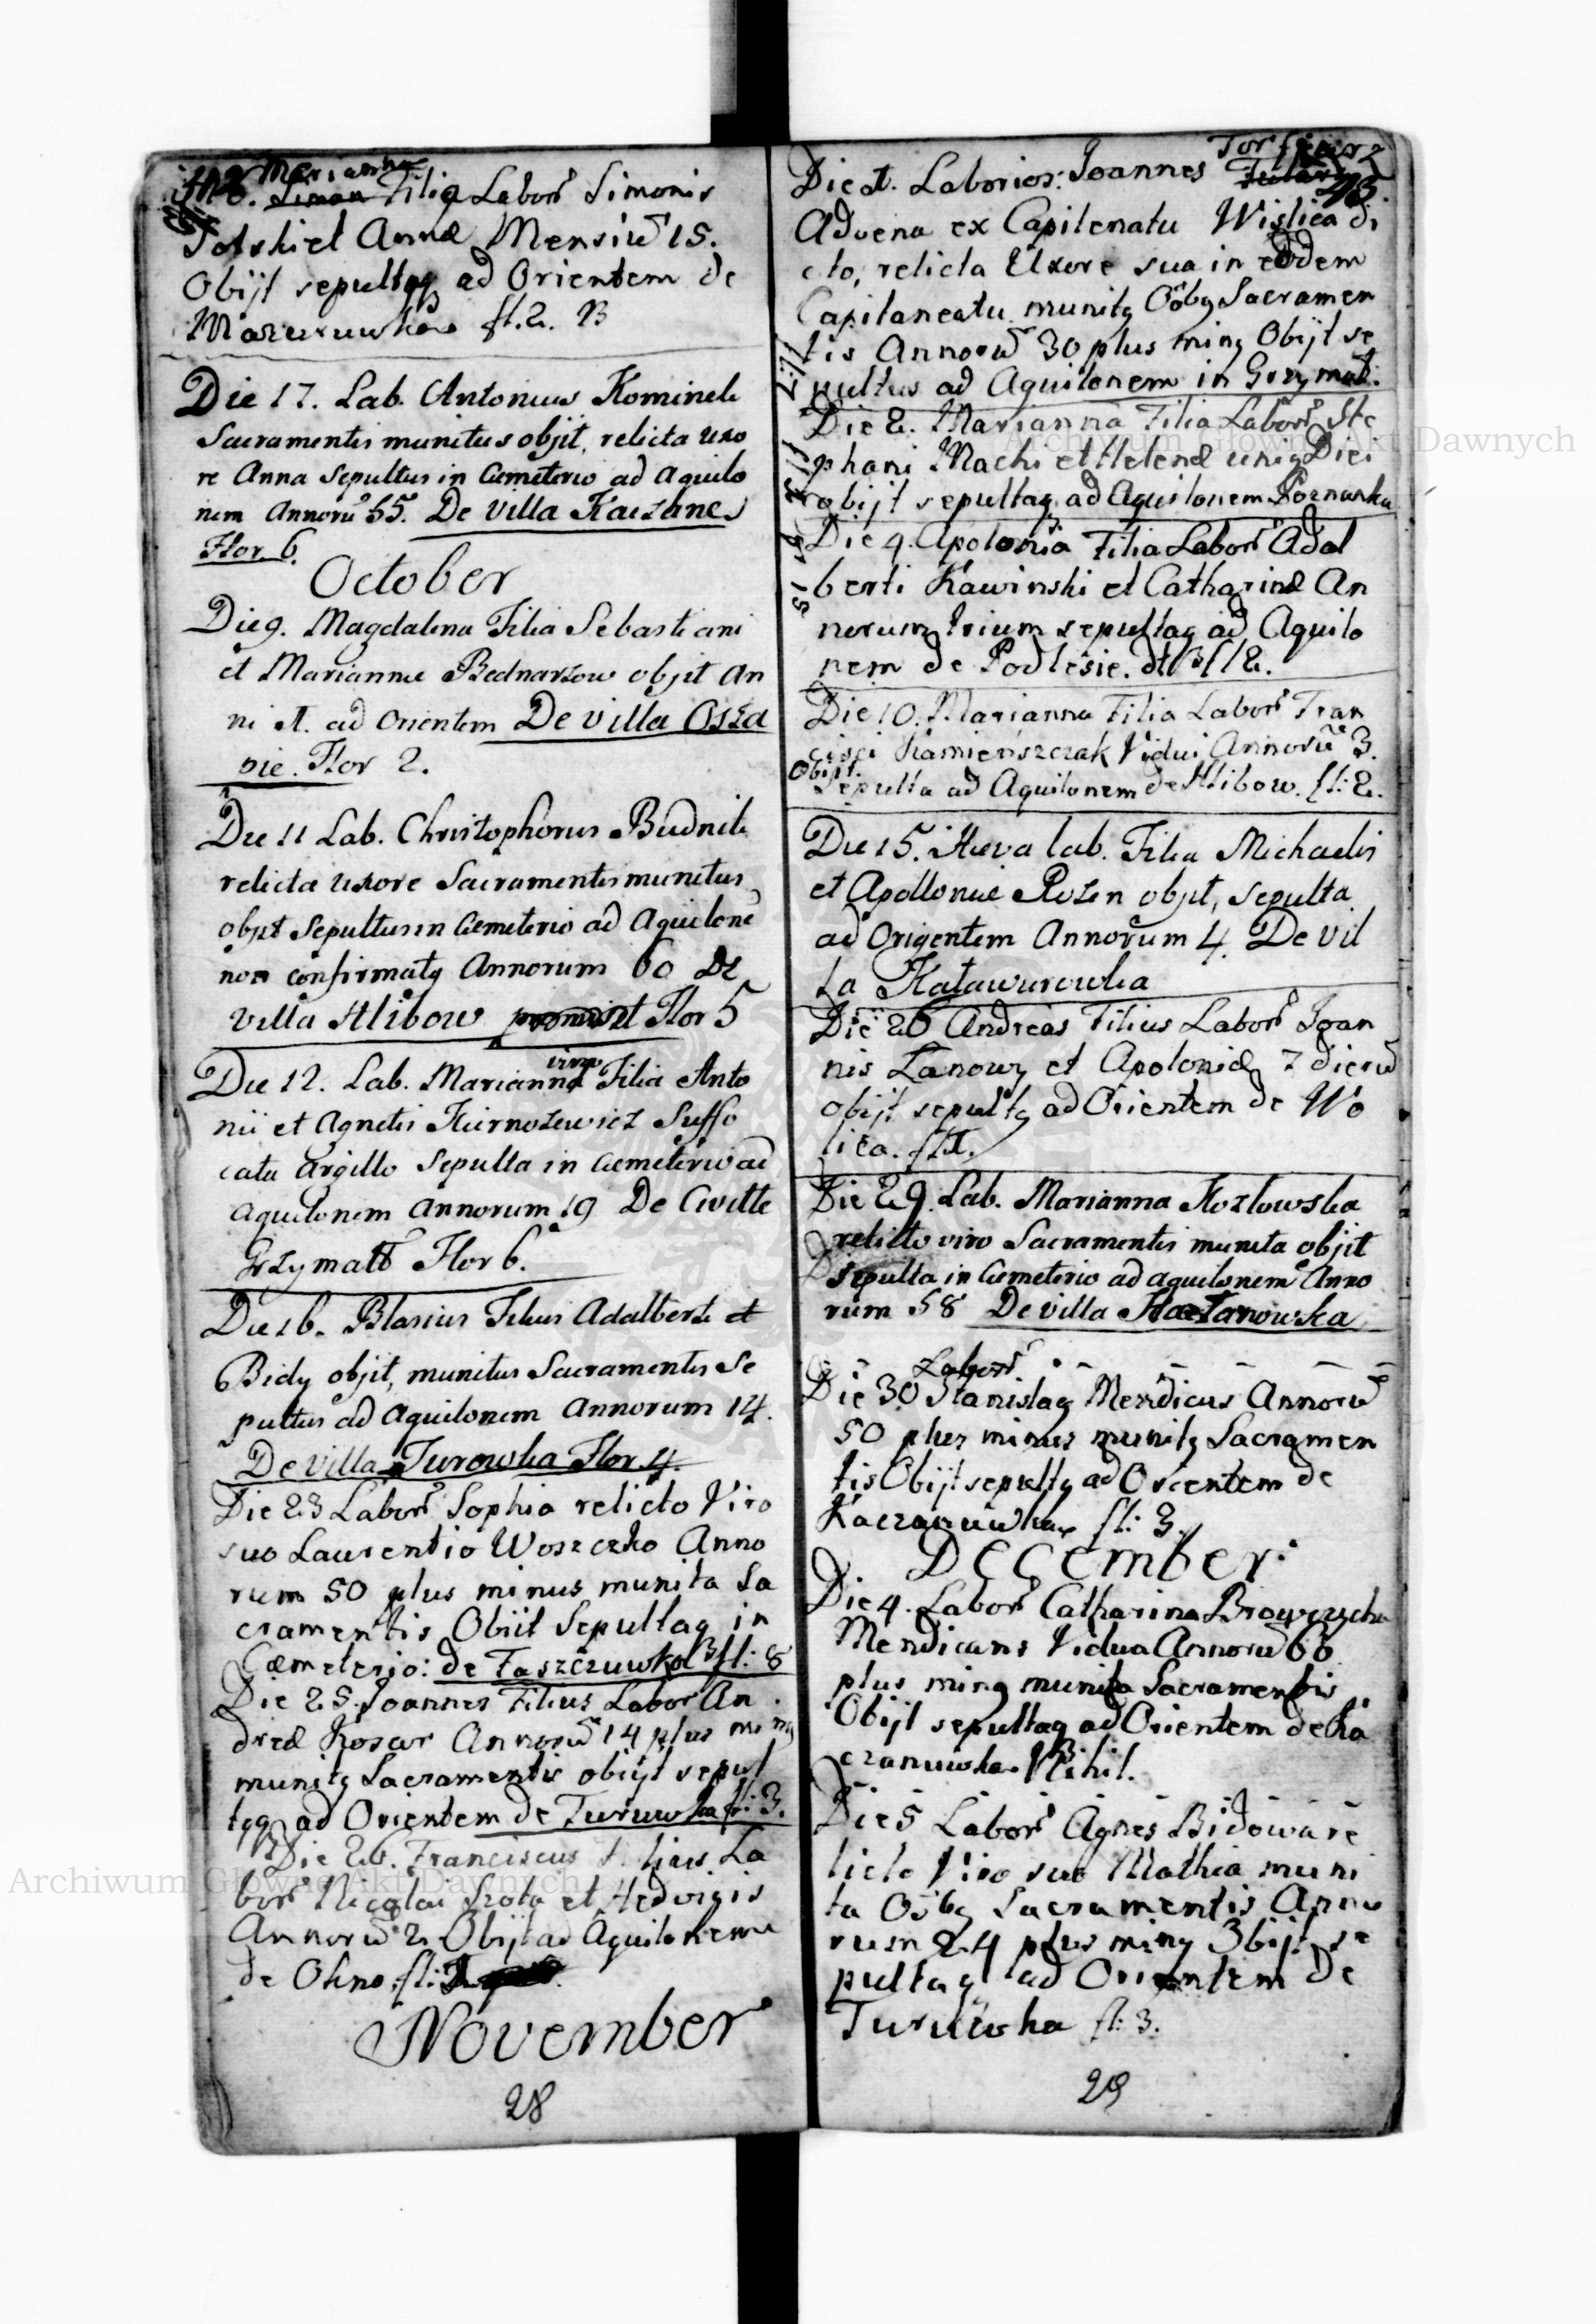 Marianna
16. Simon Filia Labor Simonis
et Annæ Mensiū 15.
Obijt sepultaq ad Orientem de
fl. 2. B
Die 17. Lab. Antonius Kominek
Sacramentis munitus objit, relicta uxo
re Anna Sepultus in Cemeterio ad aquilo
nem Annorū 55. De Villa
Flor 6.
October
Die 9. Magdalena Filia Sebastiani
et Mariannæ Bednarzow objit An
ni 1. ad Orientem De Villa Ossza
nie. Flor 2.
Die 11 Lab. Christophorus Budnik
relicta uxore Sacramentis munitus
objit Sepultus in Cemeterio ad Aquilonē
non confirmatq Annorum 60 De
Villa Hlibow Flor 5
virgo
Die 12. Lab. Marianna Filia Anto
nii et Agnetis Suffo
cata argillo Sepulta in Cemeterio ad
aquilonem annorum 19 De Civitte
Grzymałł Flor 6.
Die 16. Blasius Filius Adalberti et
Bidy objit, munitus Sacramentis Se
pultus ad aquilonem Annorum 14.
De Villa Turowka Flor 4.
Die 23 Labor Sophia relicto Viro
suo Laurentio Woszczko Anno
rum 50 plus minus munita Sa
cramentis Obiit Sepultaq in
Cæmeterio: de Faszczuwka fl: 8
Die 25. Joannes Filius Labor An
dreæ Koscur Annorū 14 plus minq
munitq Sacramentis obijt sepul
tqq ad Orientem de Turuwka fl: 3.
Die 26. Franciscus Filius La
bor Nicolai Szota et Hedvigis
Annorū 2 Obijt ad Aquilonem
de Okno fl:
November
28
Die 1. Laborios: Joannes
Advena ex Capitenatu Wislica di
cto, relicta Uxore sua in eodem
Capitaneatu munitq Oībq Sacramen
tis Annorū 30 plus minq Obijt se
pultus ad Aquilonem in Grzymał:
Die 2. Marianna Filia Labor Ste
phani Machi et Helenæ uniq Diei
obijt sepultaq ad Aquilonem Poznanka
Die 4. Apolonia Filia Labor Adal
berti Kawinski et Catharinæ An
norum trium sepultaq ad Aquilo
nem de Podlesie. fl 2.
Die 10. Marianna Filia Labor Fran
cisci Kamienszczak Vidui Annorū 3.
Obijt.
Sepulta ad Aquilonem de Hlibow. fl: 2.
Die 15. Heva lab. Filia Michaelis
et Apolloniæ Rozen objit, Sepulta
ad Origentem Annorum 4. De Vil
la Kataworowka
Die 26 Andreas Filius Labor Joan
nis Lanowy et Apoloniæ 7 dierū
obijt sepultq ad Orientem de Wo
lica. fl 1.
Die 29. Lab. Marianna Kozlowska
relicto viro Sacramentis munita objit
Sepulta in Cemeterio ad aquilonem Anno
rum 58 De villa Kaczanowka
Labor
Die 30 Stanislaq Mendicus Annorū
50 plus minus munitq Sacramen
tis Obijt sepultq ad Orientem de
Kaczanuwka fl: 3.
December:
Die 4. Labor Catharina
Mendicans Vidua Annorū 66
plus minq munita Sacramentis
Obijt sepultaq ad Orientem de Ka
czanuwka Nihil.
Die 5 Labor Agnes Bidowa re
licto Viro suo Mathia muni
ta Oībq Sacramentis Anno
rum 24 plus minq Obijt se
pultaq ad Orientem De
Turuwka fl: 3.
29
Archiwum Główne Akt Dawnych
Archiwum Główne Akt Dawnych